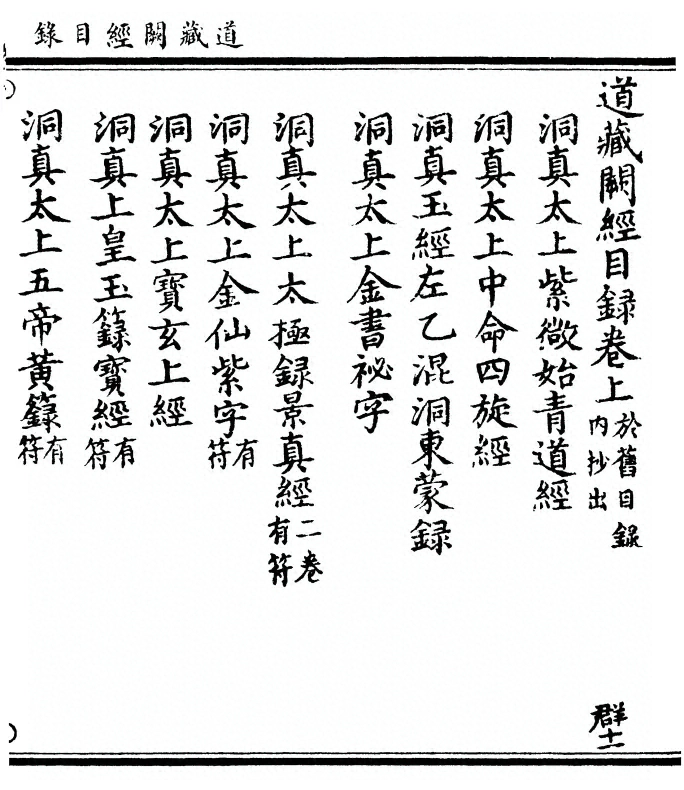 道藏闕經目錄
道藏闕經目録卷上 於舊目録内抄出
群十一
洞真太上紫微始青道經
洞真太上中命四旋經
洞真玉經左乙混洞東蒙録
洞真太上金書祕字
洞真太上太極録景真經 二卷有符
洞真太上金仙紫字 有符
洞真太上寶玄上經
洞真上皇玉籙寶經 有符
洞真太上五帝黄籙 有符